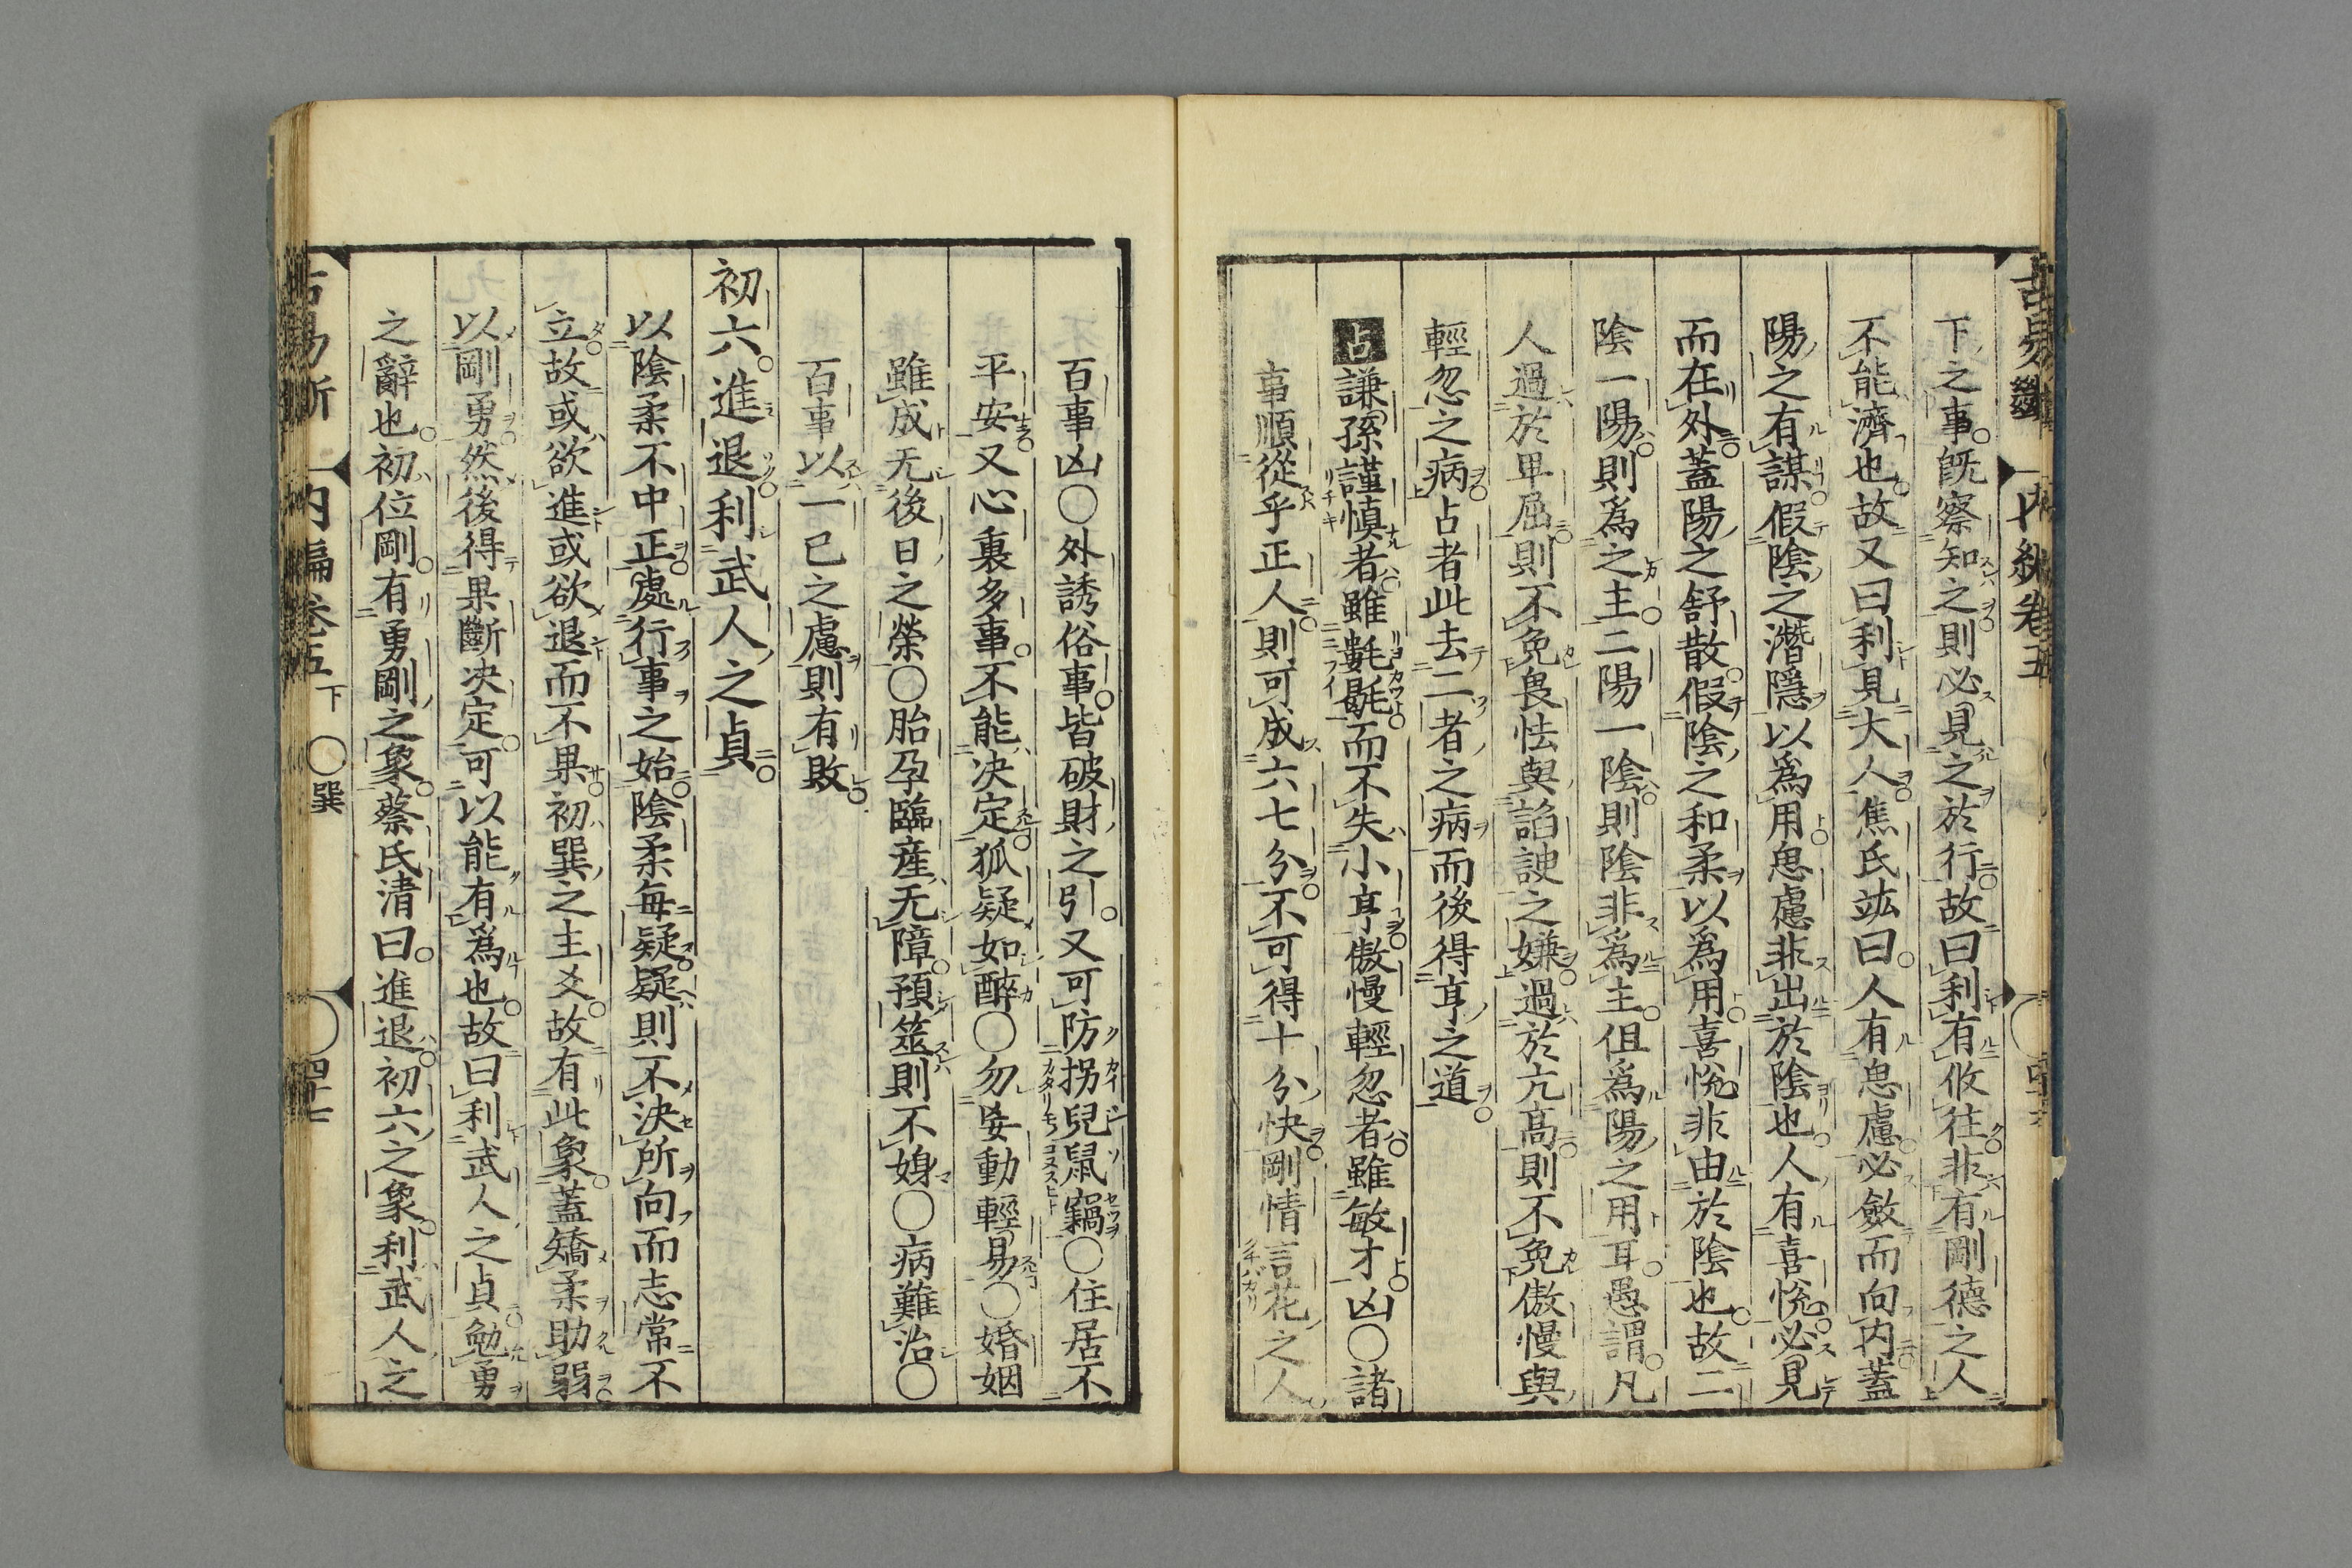 下之事既察知之則必見之於行故曰利有攸往非有剛德之人
不能濟也故又曰利見大人焦氏竑曰人有思慮必斂而向内蓋
陽之有謀假陰之濳隱以爲用思慮非出於陰也人有喜悅必見
而在外蓋陽之舒散假陰之和柔以爲用喜悅非由於陰也故二
陰一陽則爲之主二陽一陰則陰非爲主但爲陽之用耳愚謂凡
人過於卑屈則不免畏怯與諂諛之嫌過於亢高則不免傲慢與
輕忽之病占者此去二者之病而後得亨之道
占謙孫謹慎者雖鼾而不失小亨傲慢輕忽者雖敏才凶〇諸
事順從乎正人則可成六七分不可得十分快剛情言花之人
百事凶〇外誘俗事皆破財之引又可防拐兒鼠竊〇住居不
平安又心裏多事不能决定狐疑如醉〇勿妄動輕易〇婚姻
雖成无後日之榮〇胎孕臨産无障預筮則不娚〇病難治〇
百事以一己之慮則有敗
初六進退利武人之貞
以陰柔不中正處行事之始陰柔每疑疑則不決所向而志常不
立故或欲進或欲退而不果初巽之主爻故有此象蓋矯柔助弱
以剛勇然後得果斷决定可以能有爲也故曰利武人之貞勉勇
之辭也初位剛有勇剛之象蔡氏清曰進退初六之象利武人之
古易斷 内編卷五下 〇巽 四十七